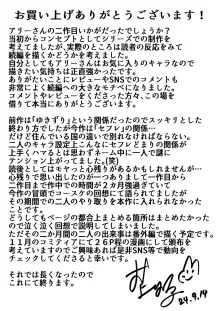 お買い上げありがとうございます！
アリーさんの二作目いかがだったでしょうか？
当初からコンセプトとしてシリーズでの制作を
考えてましたが、実際のところは読者の反応をみて
続編を描くかどうか考えてました。
自分としてもアリーさんはお気に入りのキャラなので
描きたい気持ちは正直強かったです。
ありがたいことにレビューやSNSでのコメントも
非常によく続編への大きなモチベになりました。
コメントやレビューをくださった方々、この場を
借りて本当にありがとうございます。
前作は「ゆきずり」という関係だったのでスッキリとした
終わり方でしたが今作では「セフレ」の関係…
だけど住んでいる国の違いで別れなければならない。
二人のキャラ設定上こんなにセフレどまりの関係が
上手くハマるとは思わずネーム中に一人で謎に
テンション上がってました。(笑)
読後としてはモヤっと心残りがあるかもしれませんが…
心残りで思い出したのが一つありまして一作目から
二作目まで作中での時間が２ヵ月強過ぎていて
今作の冒頭でコースケの回想にて語られてましたが
その期間での二人のやり取りを本作に入れられなかった
ことです。
どうしてもページの都合上まとめる箇所はまとめたかった
ので泣く泣く回想で端折ってしまいました。
ただその二か月間の二人の出来事は番外編に描く予定です。
１１月のコミティアにて２６P程の漫画にして頒布を
考えていますのでご興味あれば是非SNS等で動向を
チェックしてくださると幸いです。
それでは長くなったので
これにて終わります。
24.9.14